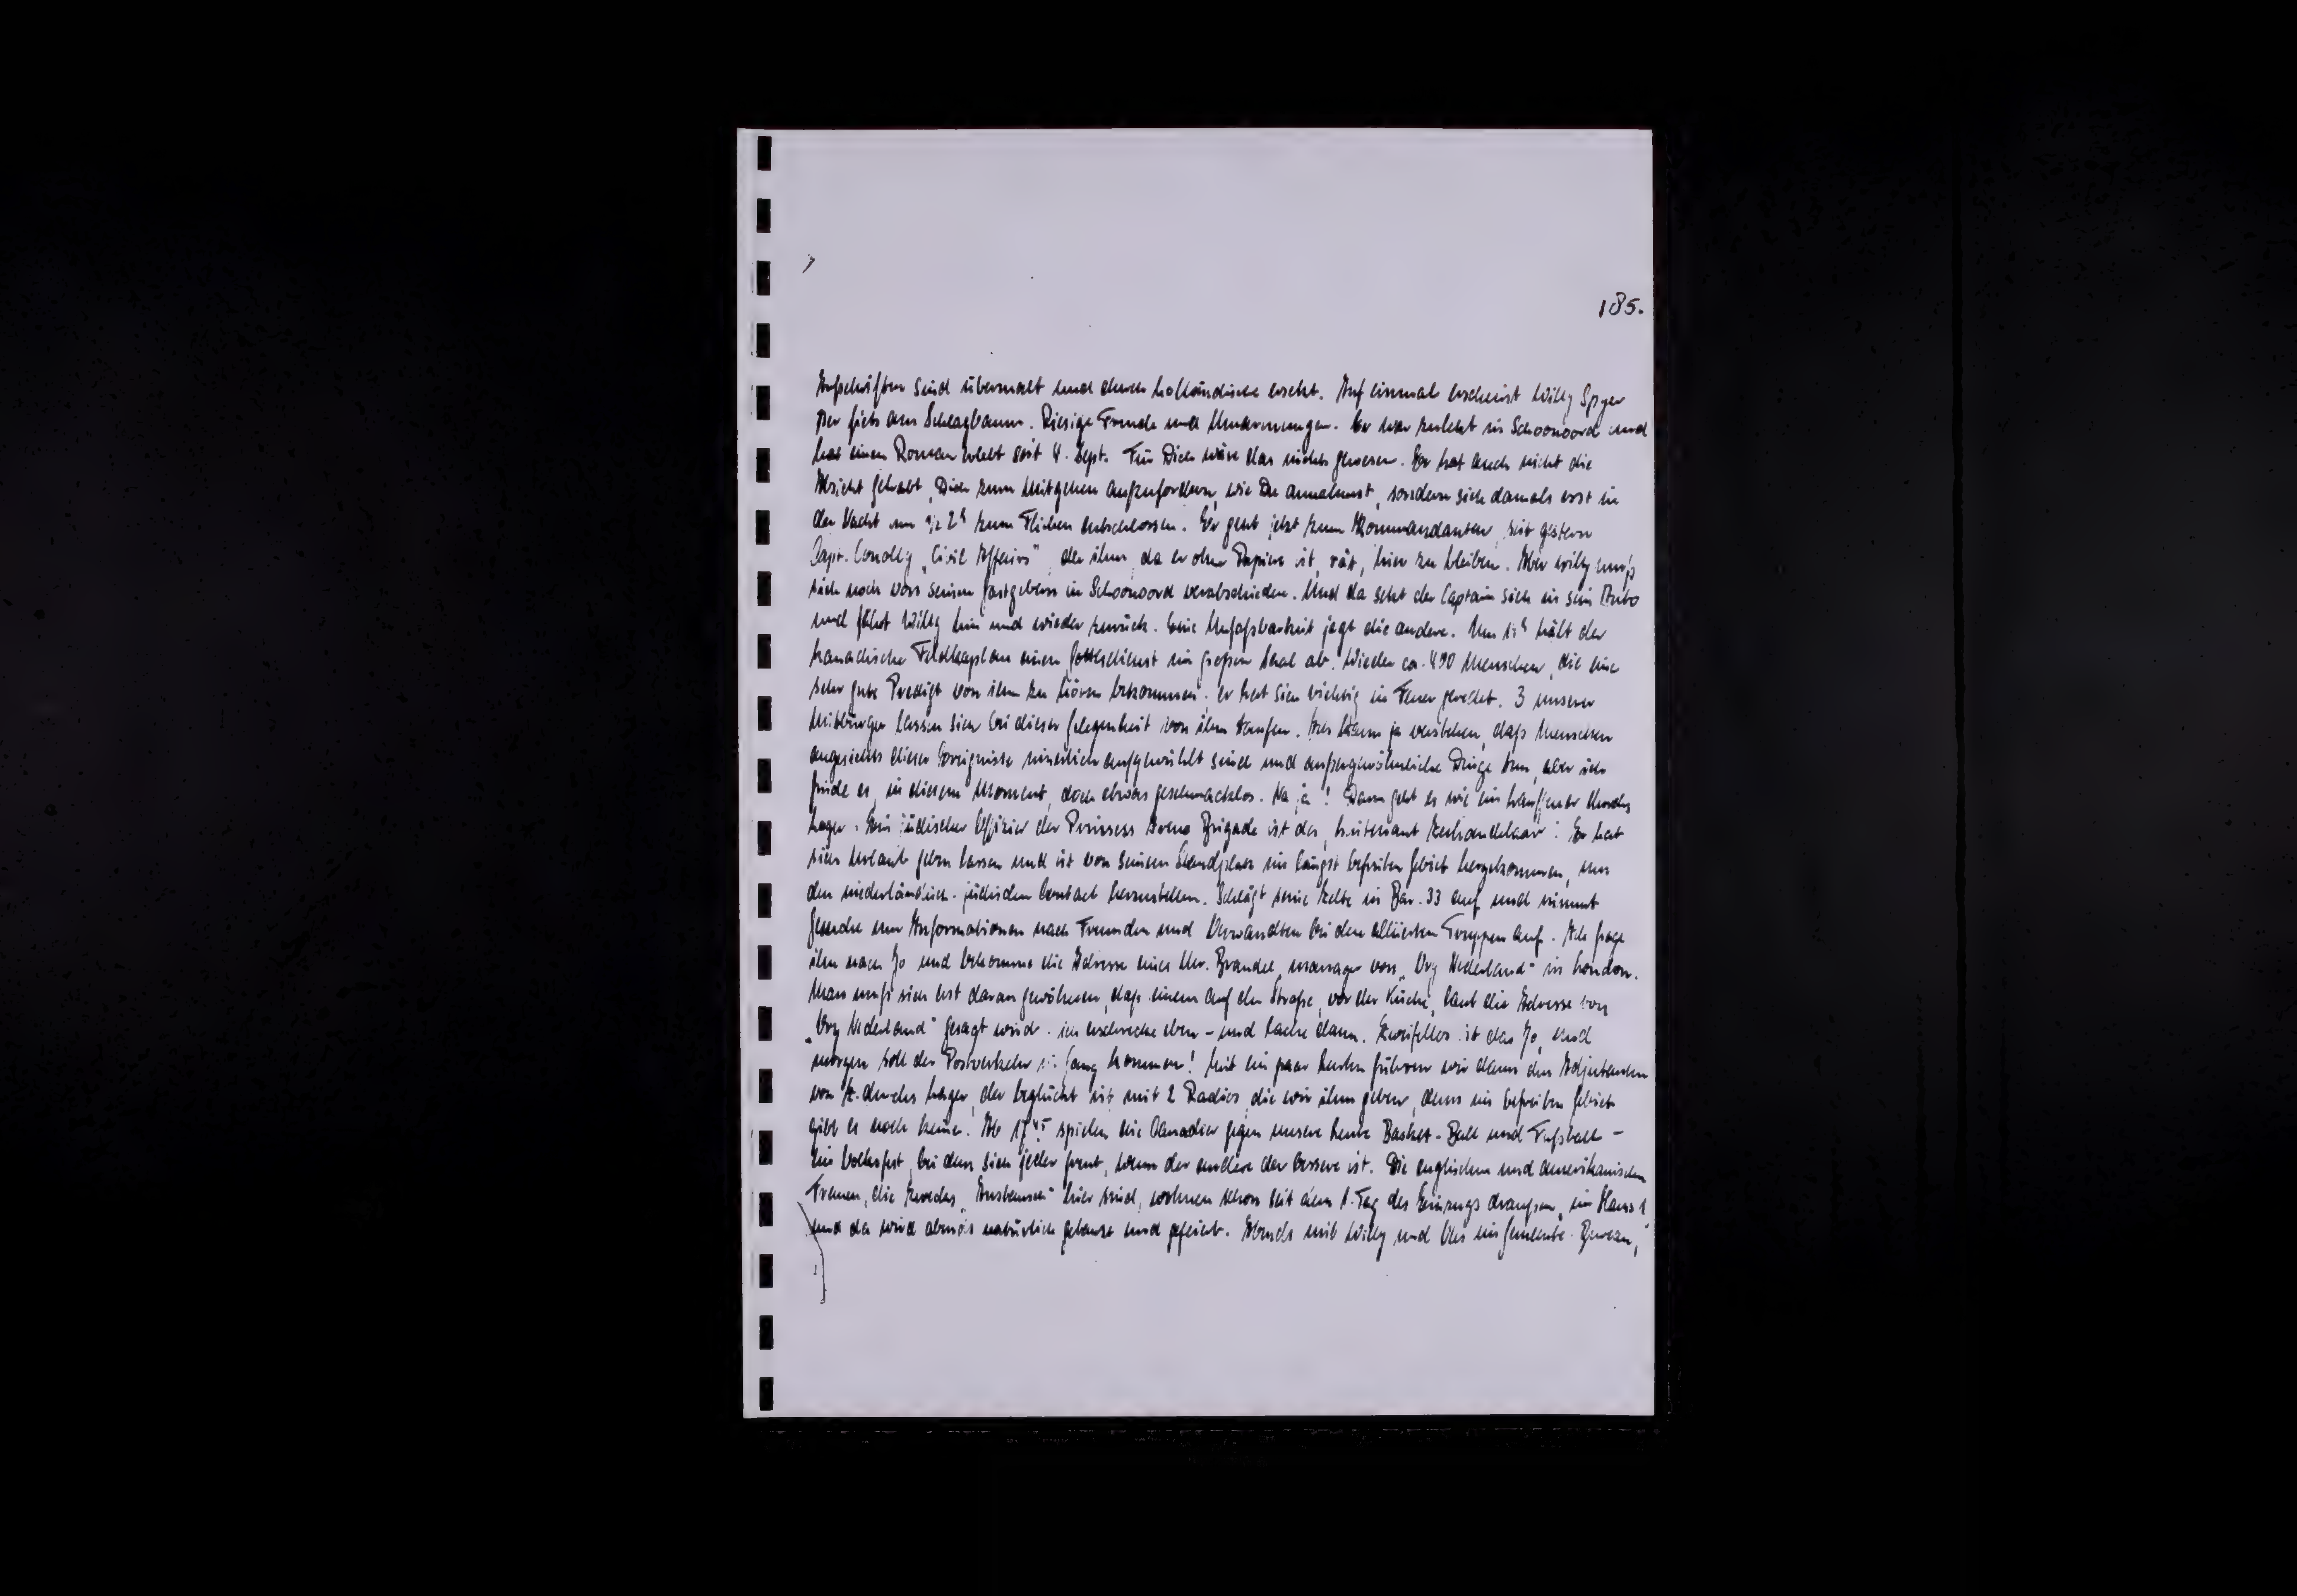 185.
Aufschriften sind übermalt und durch holländische ersetzt. Auf einmal erscheint Willy Spyer
per fiets am Schlagbaum. Riesige Freude und Umarmungen. Er war zuletzt in Schoonoord und
hat einen Roman erlebt seit 4. Sept. Für Dich wäre das nichts gewesen. Er hat auch nicht die
Absicht gehabt, Dich zum Mitgehen aufzufordern, wie Du annahmst, sondern sich damals erst in
der Nacht um ½ 2ʰ zum Fliehen entschlossen. Er geht jetzt zum Kommandanten, seit gestern
Capt. "Civil Affairs" der ihm, da er ohne Papiere ist, rät, hier zu bleiben. Aber Willy muß
sich noch von seinen Gastgebern in Schoonoord verabschieden. Und da setzt der Captain sich in sein Auto
und fährt Willy hin und wieder zurück. Eine Unfaßbarkeit jagt die andere. Um hält der
kanadische Feldkaplan einen Gottesdienst im großen Saal ab. Wieder ca. 400 Menschen, die eine
sehr gute Predigt von ihm zu hören bekommen, er hat sich richtig in Feuer geredet. 3 unserer
Mitbürger lassen sich bei dieser Gelegenheit von ihm taufen. Ich kann ja verstehen, daß Menschen
angesichts dieser Ereignisse innerlich aufgewühlt sind und außergewöhnliche Dinge tun, aber ich
finde es, in diesem Moment, doch etwas geschmacklos. Na ja! Dann geht es wie ein Lauffeuer durchs
Lager: Ein jüdischer Offizier der Prinsess Irene Brigade ist da, Luitenant! Er hat
sich Urlaub geben lassen und ist von seinem Standplatz im längst befreiten Gebiet hergekommen, um
den niederländisch-jüdischen Contact herzustellen. Schlägt seine Zelte in Bar. 33 auf und nimmt
Gesuche um Informationen nach Freunden und Verwandten bei den alliierten Truppen auf. Ich frage
ihn nach Jo und bekomme die Adresse eines Mr. Brandel, manager von "Vry Nederland" in London.
Man muß sich erst daran gewöhnen, daß einem auf der Straße, vor der Küche, laut die Adresse von
"Vry Nederland" gesagt wird. ich erschrecke eben - und lache dann. Zweifellos ist das Jo, und
morgen soll der Postverkehr in Gang kommen! Mit ein paar Leuten führen wir dann den Adjutanten
von Z. durchs Lager, der beglückt ist mit 2 Radios, die wir ihm geben, denn im befreiten Gebiet
gibt es noch keine. Ab 17⁴⁵ spielen die Canadier gegen unsere Leute Basket-Ball und Fußball -
Ein Volksfest, bei dem sich jeder freut, wenn der andere der bessere ist. Die englischen und amerikanischen
Frauen, die zwecks "Austausch" hier sind, wohnen schon seit dem 1. Tag des Einzugs draußen, im Haus 1
und da wird abends natürlich getanzt und gefeiert. Abends mit Willy und